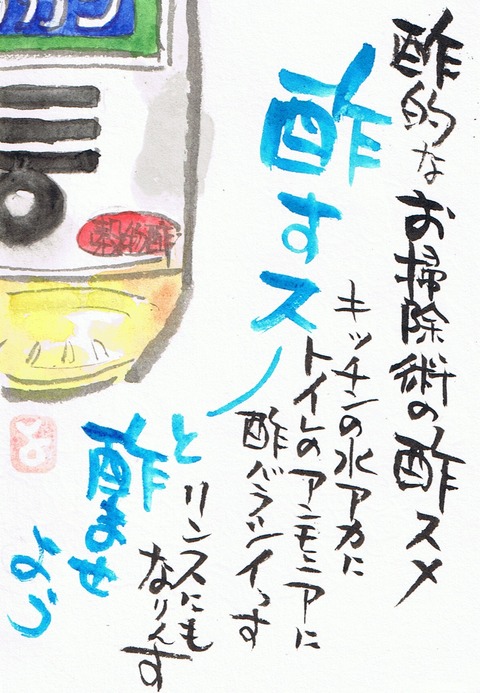 酢的なお掃除術の酢スメ
キッチンの水アカに
トイレのアンモニアに
酢バラシイっす
リンスにも
なりんす
酢すスー
と
酢ませ
よう
穀物酢